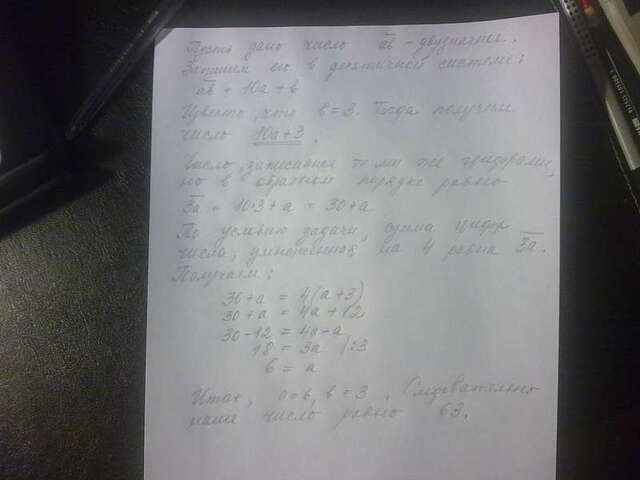 Пусть дано число ab - двузначное.
Запишем его в десятичной системе:
ab = 10a + b
Известно, что b = 3. Тогда получим
число 10a + 3.
Число, записанное теми же цифрами,
но в обратном порядке равно
3a = 10·3 + a = 30 + a
По условию задачи, сумма цифр
числа, умноженная на 4 равна 3a.
Получаем:
30 + a = 4(a + 3)
30 + a = 4a + 12
30 - 12 = 4a - a
18 = 3a |:3
6 = a
Итак, a = 6, b = 3. Следовательно
наше число равно 63.